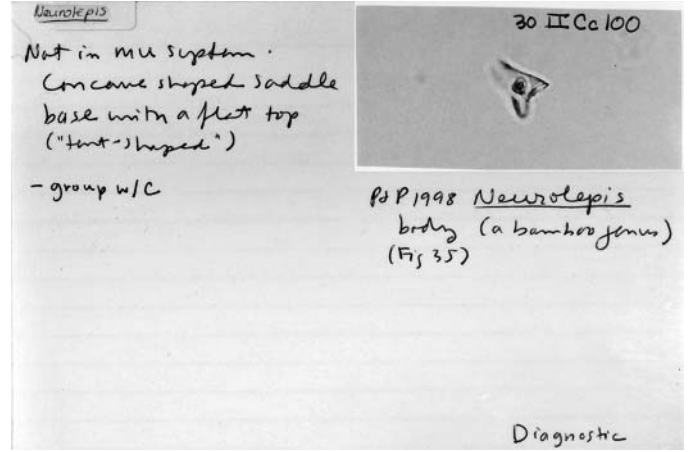 Neurolepis
Not in MU system.
Concave shaped saddle
base with a flat top
("tent-shaped")
- group w/C
30 II Cc 100
P&P 1998 Neurolepis
body (a bamboo genus)
(Fig 35)
Diagnostic